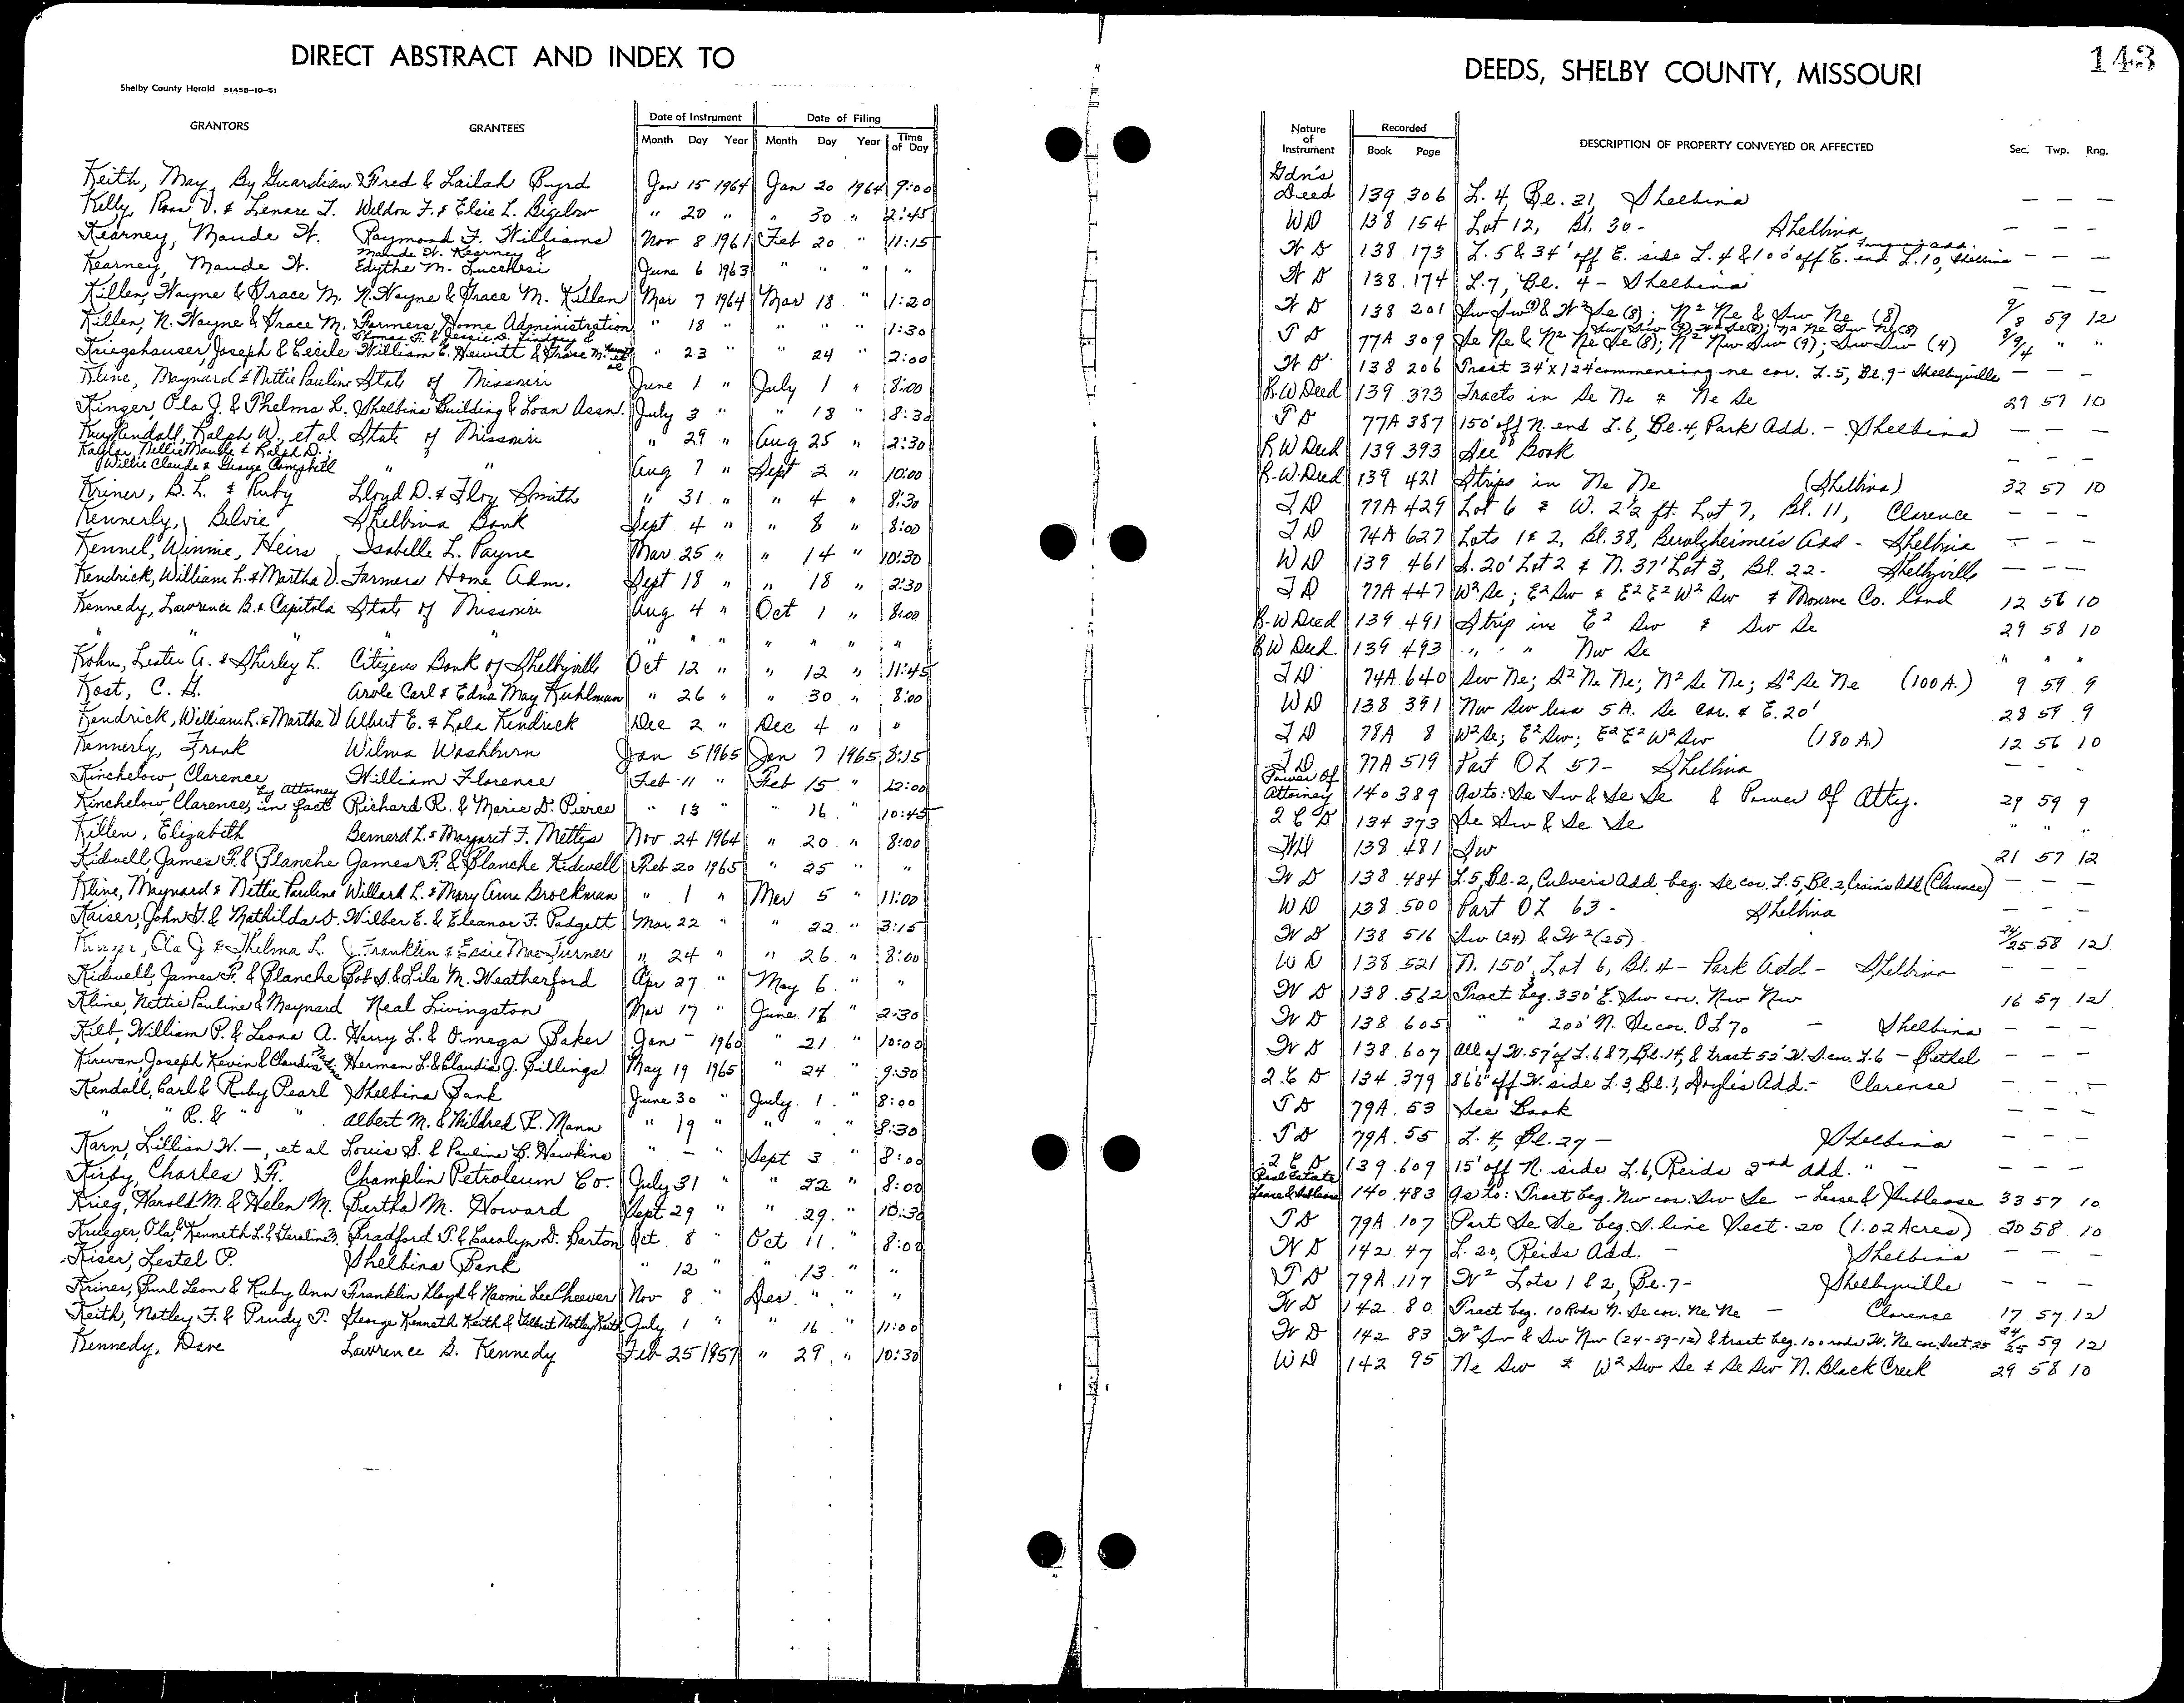 DIRECT ABSTRACT AND INDEX TO
DEEDS, SHELBY COUNTY, MISSOURI
143
Shelby County Herald 51458-10-51
GRANTORS GRANTEES Date of Instrument Date of Filing
Month Day Year Month Day Year Time of Day
Nature of Instrument Recorded Book Page DESCRIPTION OF PROPERTY CONVEYED OR AFFECTED Sec. Twp. Rng.
Keith, May, By Guardian Fred & Lailah Byrd Jan 15 1964 Jan 20 1964 9:00 Gdn's Deed 139 306 L. 4, Bl. 21, Shelbina — — —
Kelly, Ross V. & Lenore T. Weldon F. & Elsie L. Bigelow " 20 " " 30 " 2:45 WD 138 154 Lot 12, Bl. 30 - Shelbina — — —
Kearney, Maude W. Raymond F. Williams Nov 8 1961 Feb 20 " 11:15 W D 138 173 L. 5 & 34' off E. side L. 4 & 100' off E. end L. 10, Shelbina — — —
Kearney, Maude W. Maude W. Kearney & Edythe M. Lucchesi June 6 1963 " " " " W D 138 174 L. 7, Bl. 4 - Shelbina — — —
Killen, Wayne & Grace M. N. Wayne & Grace M. Killen Mar 7 1964 Mar 18 " 1:20 W D 138 201 Sw Sw (9) & W² Se (8); N² Ne & Sw Ne (8) 9/8 59 12
Killen, N. Wayne & Grace M. Farmers Home Administration " 18 " " " " 1:30 T D 77A 309 Se Ne & N² Ne Se (8); N² Nw Sw (9); Sw Sw (4) 8/9/4 " "
Kriegshauser, Joseph & Cecile Thomas F. & Jessie D. Lindsey & William E. Hewitt & Grace M. " 23 " " 24 " 2:00 W D 138 206 Tract 34' x 124' commencing ne cor. L. 5, Bl. 9 - Shelbyville — — —
Kline, Maynard & Nettie Pauline State of Missouri June 1 " July 1 " 8:00 R.W Deed 139 373 Tracts in Se Ne & Ne Se 29 57 10
Kinger, Ola J. & Thelma L. Shelbina Building & Loan Assn. July 3 " " 13 " 8:30 T D 77A 387 150' off N. end L. 6, Bl. 4, Park Add. - Shelbina — — —
Kuykendall, Ralph W., et al State of Missouri " 29 " Aug 25 " 2:30 R W Deed 139 393 See Book — — —
Kaylor, Nellie Maude & Ralph D.;
Willie Claude & George Campbell " " Aug 7 " Sept 2 " 10:00 R.W. Deed 139 421 Strips in Ne Ne (Shelbina) 32 57 10
Kriner, B. L. & Ruby Lloyd D. & Floy Smith " 31 " " 4 " 8:30 T D 77A 429 Lot 6 & W. 2½ ft. Lot 7, Bl. 11, Clarence — — —
Kennerly, Belvie Shelbina Bank Sept 4 " " 8 " 8:00 T D 74A 627 Lots 1 & 2, Bl. 38, Berolzheimer's Add - Shelbina — — —
Kennel, Winnie, Heirs Isabelle L. Payne Mar 25 " " 14 " 10:30 WD 139 461 S. 20' Lot 2 & N. 37' Lot 3, Bl. 22 - Shelbyville — — —
Kendrick, William L. & Martha V. Farmers Home Adm. Sept 18 " " 18 " 2:30 T D 77A 447 W² Se; E² Sw & E² E² W² Sw & Monroe Co. land 12 56 10
Kennedy, Lawrence B. & Capitola State of Missouri Aug 4 " Oct 1 " 8:00 R-W Deed 139 491 Strip in E² Sw & Sw Se 29 58 10
" " " " " " " " " " " " R W Deed 139 493 " " Nw Se " " "
Kohn, Lester A. & Shirley L. Citizens Bank of Shelbyville Oct 12 " " 12 " 11:45 T D 74A 640 Sw Ne; S² Ne Ne; N² Se Ne; S² Se Ne (100 A.) 9 59 9
Kost, C. G. Arole Carl & Edna May Kuhlman " 26 " " 30 " 8:00 WD 138 391 Nw Sw less 5 A. Se cor. & E. 20' 28 59 9
Kendrick, William L. & Martha V Albert E. & Lola Kendrick Dec 2 " Dec 4 " " T D 78A 8 W² Se; E² Sw; E² E² W² Sw (180 A.) 12 56 10
Kennerly, Frank Wilma Washburn Jan 5 1965 Jan 7 1965 8:15 T D 77A 519 Part OL 57 - Shelbina — — —
Kinchelow, Clarence William Florence Feb 11 " Feb 15 " 12:00 Power Of Attorney 140 389 As to: Se Sw & Se Se & Power Of Atty. 29 59 9
Kinchelow, Clarence, by attorney in fact Richard R. & Marie D. Pierce " 13 " 16 " 10:45 2 C D 134 373 Se Sw & Se Se " " "
Killen, Elizabeth Bernard L. & Margaret F. Mettes Nov 24 1964 " 20 " 8:00 WD 138 481 Sw 21 57 12
Kidwell, James F. & Blanche James F. & Blanche Kidwell Feb 20 1965 " 25 " " W D 138 484 L. 5, Bl. 2, Culver's Add. beg. Se cor. L. 5, Bl. 2, Crain's Add (Clarence) — — —
Kline, Maynard & Nettie Pauline Willard L. & Mary Anne Brockman " 1 " Mar 5 " 11:00 WD 138 500 Part OL 63 - Shelbina — — —
Kaiser, John G. & Mathilda D. Wilber E. & Eleanor F. Padgett Mar 22 " " 22 " 3:15 W D 138 516 Sw (24) & W² (25) 24/25 58 12
Kinger, Ola J & Thelma L. J. Franklin & Essie Mae Turner " 24 " " 26 " 8:00 W D 138 521 N. 150', Lot 6, Bl. 4 - Park Add - Shelbina — — —
Kidwell, James F. & Blanche Bob S. & Lila M. Weatherford Apr 27 " May 6 " " W D 138 562 Tract beg. 330' E. Sw cor. Nw Nw 16 57 12
Kline, Nettie Pauline & Maynard Neal Livingston Mar 17 " June 18 " 2:30 W D 138 605 " " 200' N. Se cor. OL 70 - Shelbina — — —
Kilb, William P. & Leona A. Harry L. & Omega Baker Jan — 1960 " 21 " 10:00 W D 138 607 All of W. 57' of L. 6 & 7, Bl. 14, & tract 52' W. S. cor. L. 6 - Bethel — — —
Kirwan, Joseph Kevin & Claudia Herman L. & Claudia J. Billings May 19 1965 " 24 " 9:30 2 C D 134 379 86'6" off W. side L. 3, Bl. 1, Doyle's Add. - Clarence — — —
Kendall, Carl & Ruby Pearl Shelbina Bank June 30 " July 1 " 8:00 T D 79A 53 See Book — — —
" " R. & " " Albert M. & Mildred P. Mann " 19 " " " " 8:30 T D 79A 55 L. 4, Bl. 27 - Shelbina — — —
Karn, Lillian W. —, et al Louis S. & Pauline B. Hawkins " — " Sept 3 " 8:00 2 C D 139 609 15' off N. side L. 6, Reids 2nd Add. " — — — —
Kirby, Charles F. Champlin Petroleum Co. July 31 " " 22 " 8:00 Real Estate Lease & Sublease 140 483 As to: Tract beg. Nw cor. Sw Se - Lease & Sublease 33 57 10
Krieg, Harold M. & Helen M. Bertha M. Howard Sept 29 " " 29 " 10:30 T D 79A 107 Part Se Se beg. S. line Sect. 20 (1.02 Acres) 20 58 10
Krueger, Ola, Kenneth L. & Geraline Bradford P. & Carolyn D. Barton Oct. 8 " Oct 11 " 8:00 W D 142 47 L. 20, Reids Add. - Shelbina — — —
Kiser, Lestel P. Shelbina Bank " 12 " " 13 " " T D 79A 117 W² Lots 1 & 2, Bl. 7 - Shelbyville — — —
Kriner, Burl Leon & Ruby Ann Franklin Lloyd & Naomi Lee Cheever Nov 8 " Dec. " " " W D 142 80 Tract beg. 10 Rods N. Se cor. Ne Ne - Clarence 17 57 12
Keith, Notley F. & Prudy P. George Kenneth Keith & Gilbert Notley Keith July 1 " " 16 " 11:00 W D 142 83 W² Sw & Sw Nw (24-59-12) & tract beg. 100 rods W. Ne cor. Sect 25 24/25 59 12
Kennedy, Dave Lawrence B. Kennedy Feb 25 1957 " 29 " 10:30 WD 142 95 Ne Sw & W² Sw Se & Se Sw N. Black Creek 29 58 10